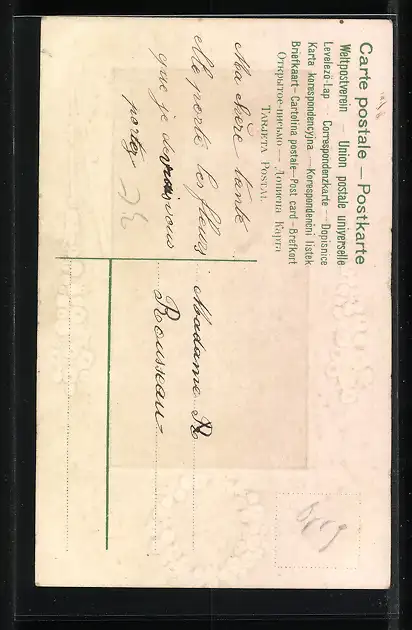 Carte postale — Postkarte
Weltpostverein — Union postale universelle
Levelező-Lap - Correspondenzkarte — Dopisnice
Karta korespondencyjna — Korespondenčni listek
Briefkaart — Cartolina postale — Post card — Brefkort
Открытое письмо — Дописна Карта
TARJETA POSTAL
Ma chère tante
Me porte les fleurs
que je devrais vous
porter
Madame R
Rousseau